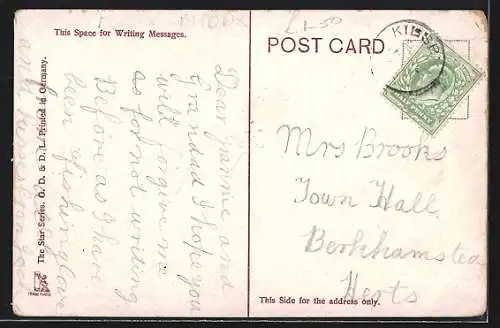 £1-50
This Space for Writing Messages.
POST CARD
Dear Grannie and
Grandad I hope you
will forgive me
as for not writing
Before as I have
been fishing
and
Mrs Brooks
Town Hall
Berkhamsted
Herts
The Star Series. G. D. & D. L. Printed in Germany.
This Side for the address only.